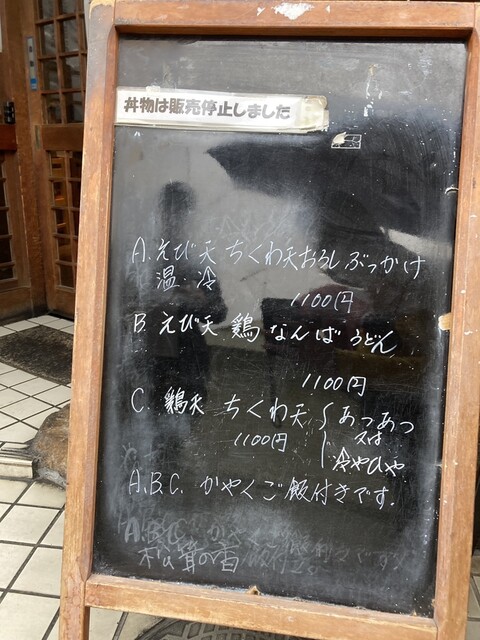 丼物は販売停止しました
A. えび天 ちくわ天おろしぶっかけ
温・冷
1100円
B. えび天 鶏 なんば うどん
1100円
C. 鶏天 ちくわ天 あつあつ
1100円 又は
冷やひや
A.B.C. かやくご飯付きです.